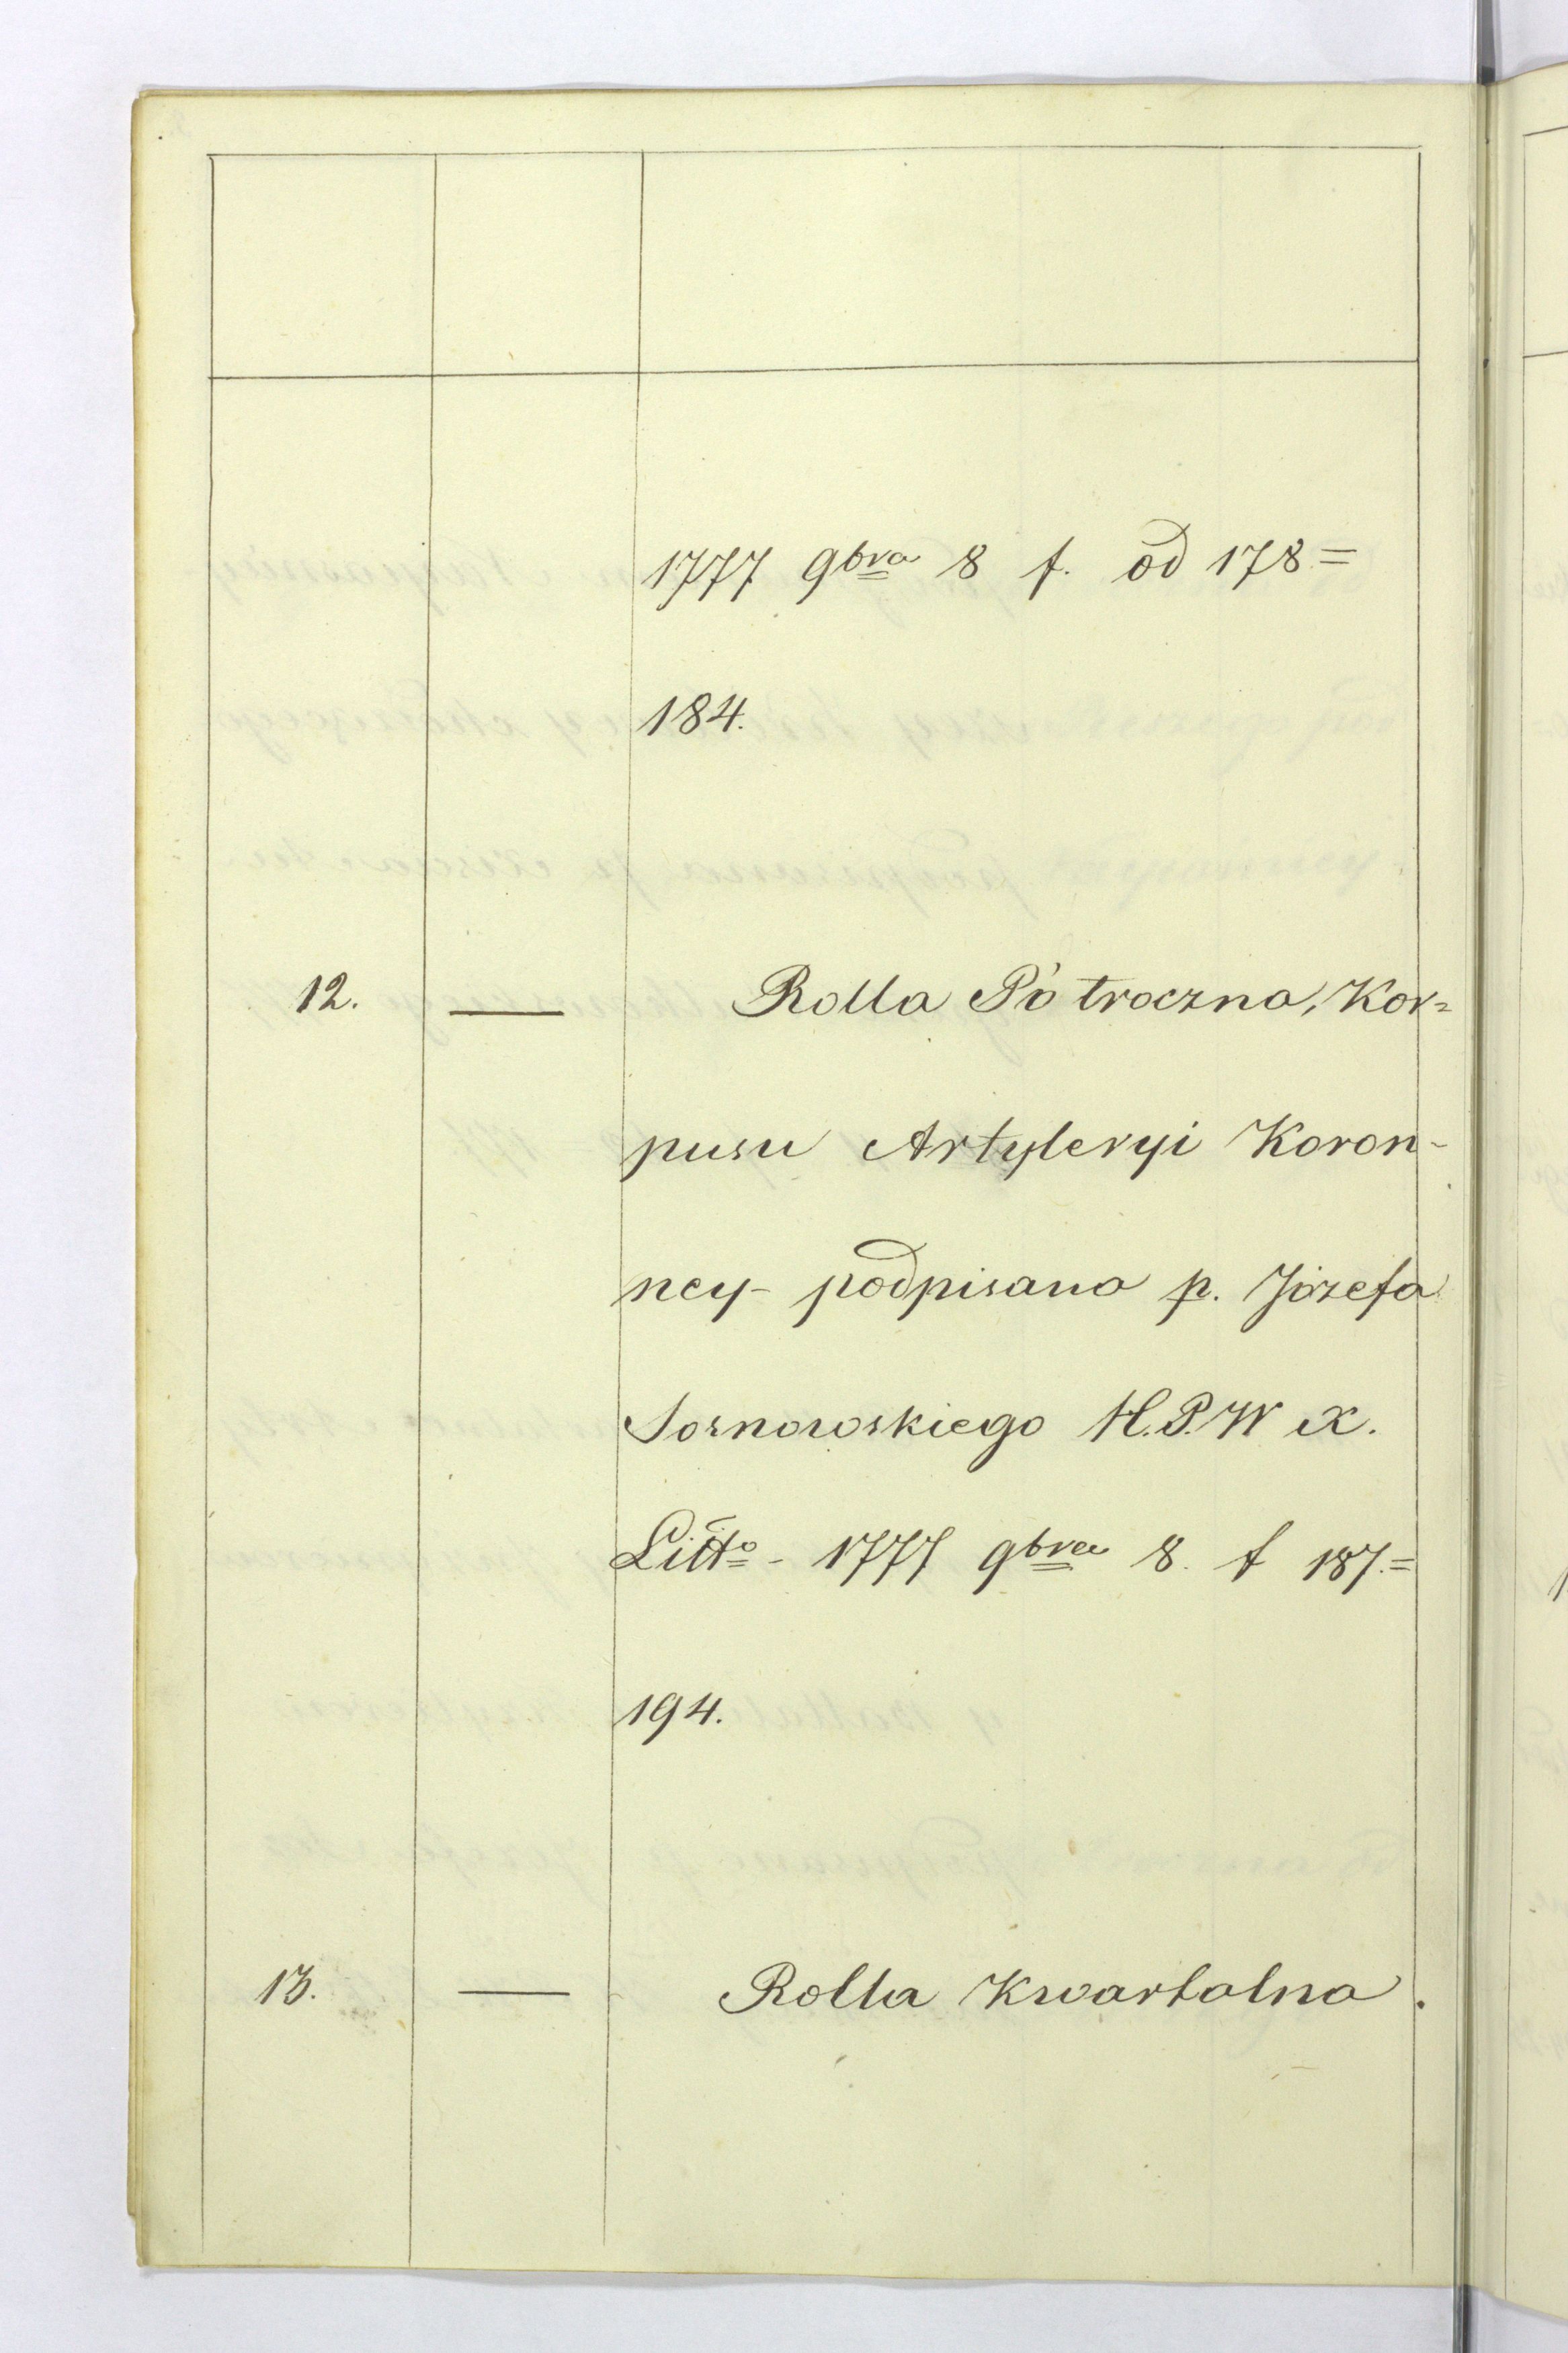 1777 9bra 8 f. od 178=
184.
12. — Rolla Pótroczna, Kor=
pusu Artyleryi Koron-
ney - podpisana p. Józefa
Sosnowskiego H.P.W X.
Litto - 1777 9bra 8. f 187.=
194.
13. — Rolla Kwartalna.